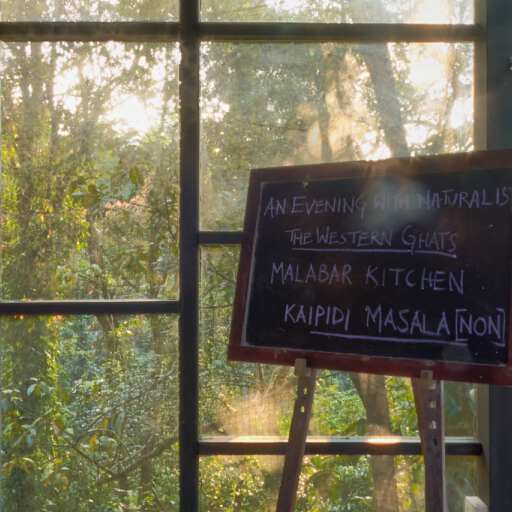 AN EVENING WITH NATURALIS
THE WESTERN GHATS
MALABAR KITCHEN
KAIPIDI MASALA [NON]